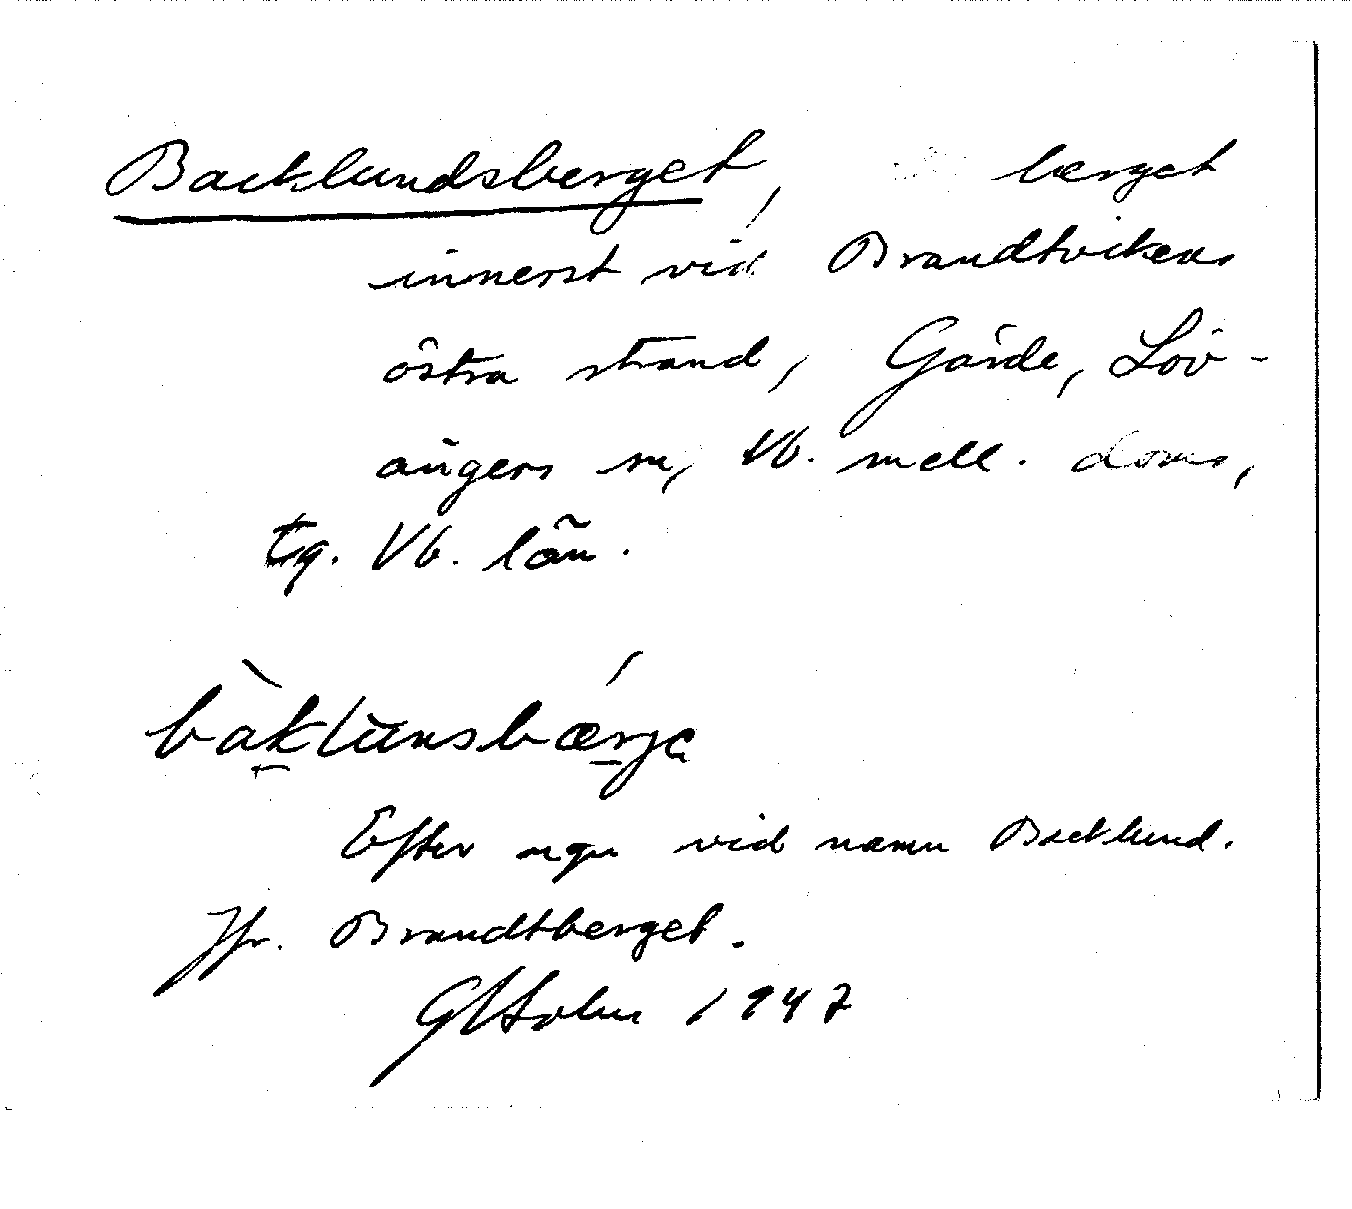 Backlundsberget, berget
innerst vid Brandtvikens
östra strand, Gärde, Löv-
ångers sn, Vb. mell. doms,
tg. Vb. län.
bàklünsbǽrja
Efter ngn vid namn Backlund.
Jfr. Brandtberget.
GHolm 1947